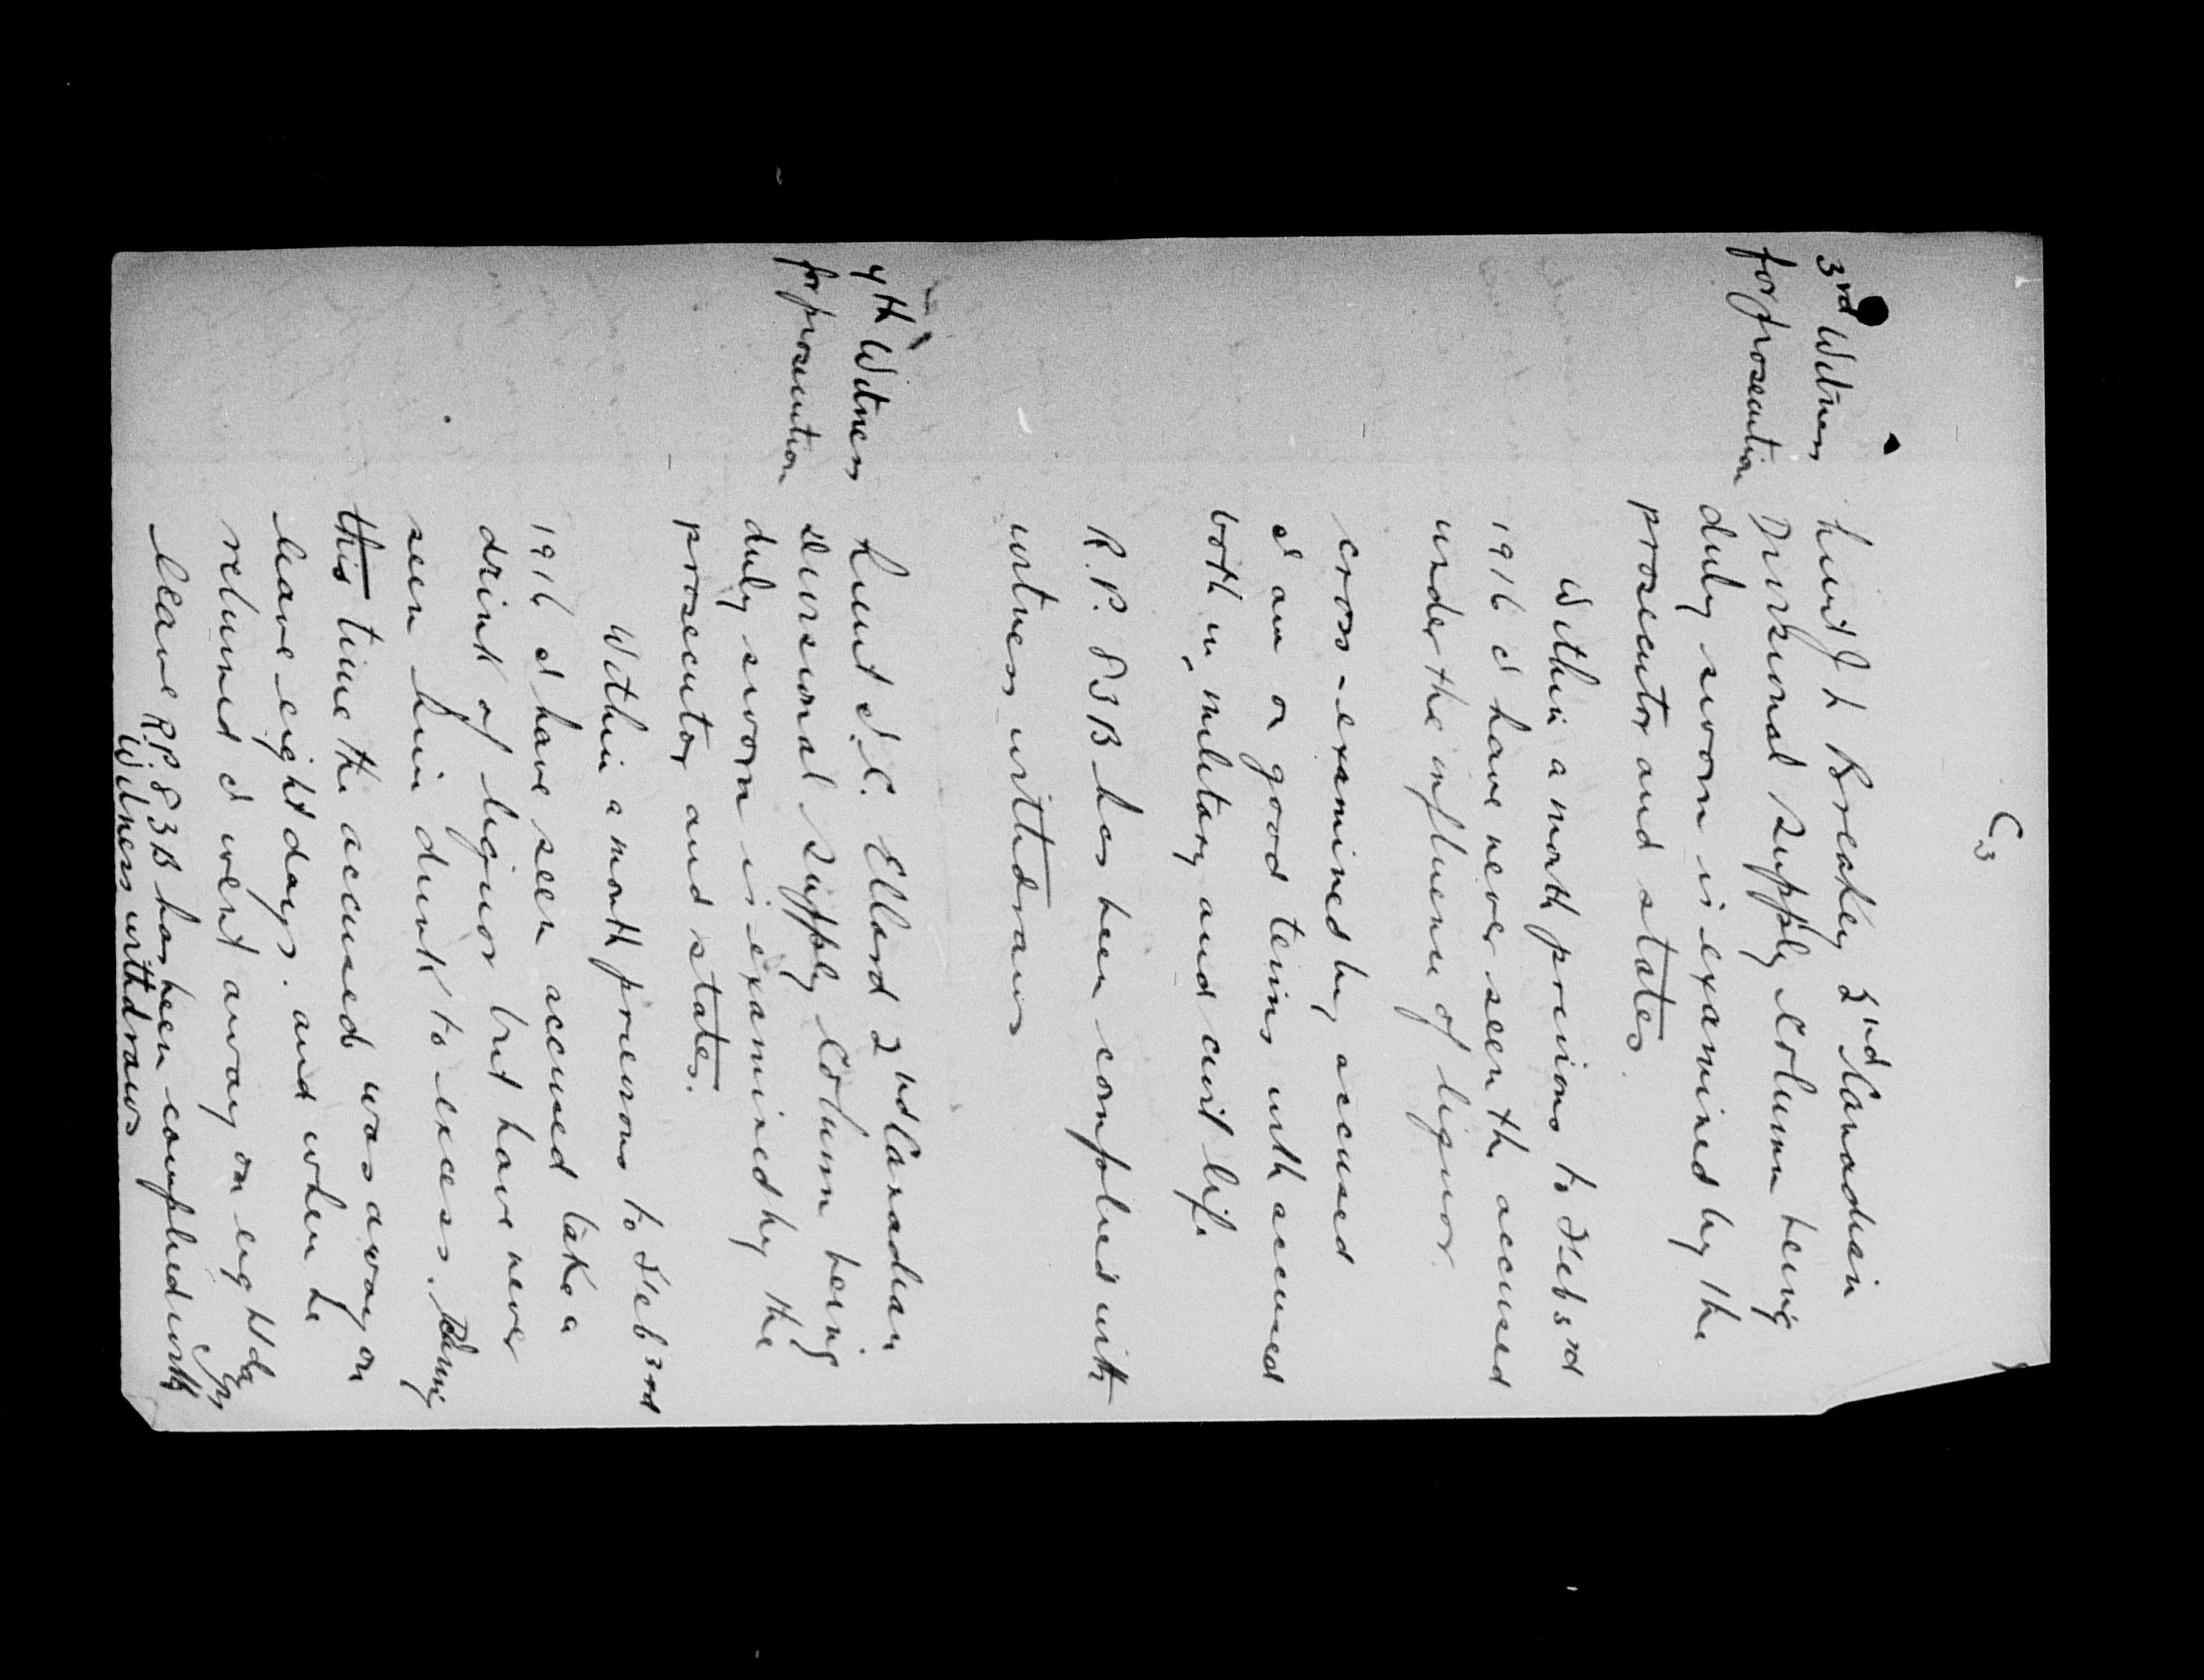 C3
3rd Witness
for prosecution
Lieut J L Breakey 2nd Canadian
Divisional Supply Column being
duly sworn is examined by the
prosecutor and states.
Within a month previous to Feb 3rd
1916 I have never seen the accused
under the influence of liquor.
Cross-examined by accused
I am on good terms with accused
both in military and civil life
R.P. 83B has been complied with
witness withdraws
4th Witness
for prosecution
Lieut I.C. Ellard 2nd Canadian
Divisional Supply Column being
duly sworn is examined by the
prosecutor and states.
Within a month previous to Feb 3rd
1916 I have seen accused take a
drink of liquor but have never
seen him drunk to excess. During
this time the accused was away on
leave eight days. and when he
returned I went away on eight days
leave R.P. 83B has been complied with
Witness withdraws